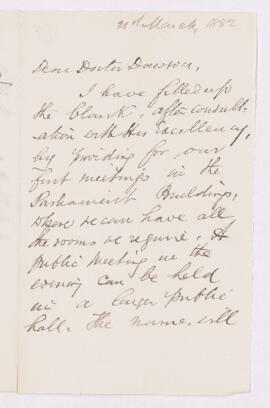 March, 1882
Dear Doctor Dawson,
I have filled up
the blank, after consult-
ation with His Excellency,
by providing for our
first meetings in the
Parliament Buildings,
where we can have all
the rooms we require. A
Public Meeting in the
evening can be held
in a larger public
hall. The names will